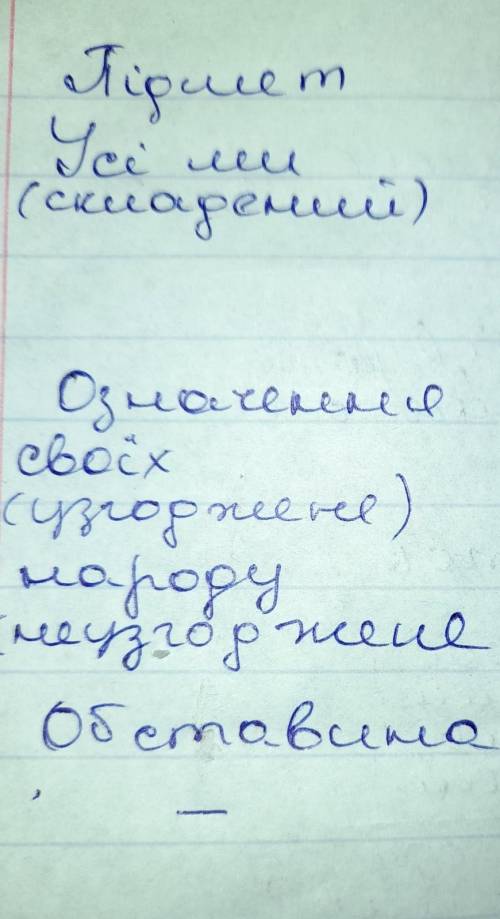 Підмет
Усі ми
(складений)
Означення
своїх
(узгоджене)
народу
(неузгоджене
Обставина
, —